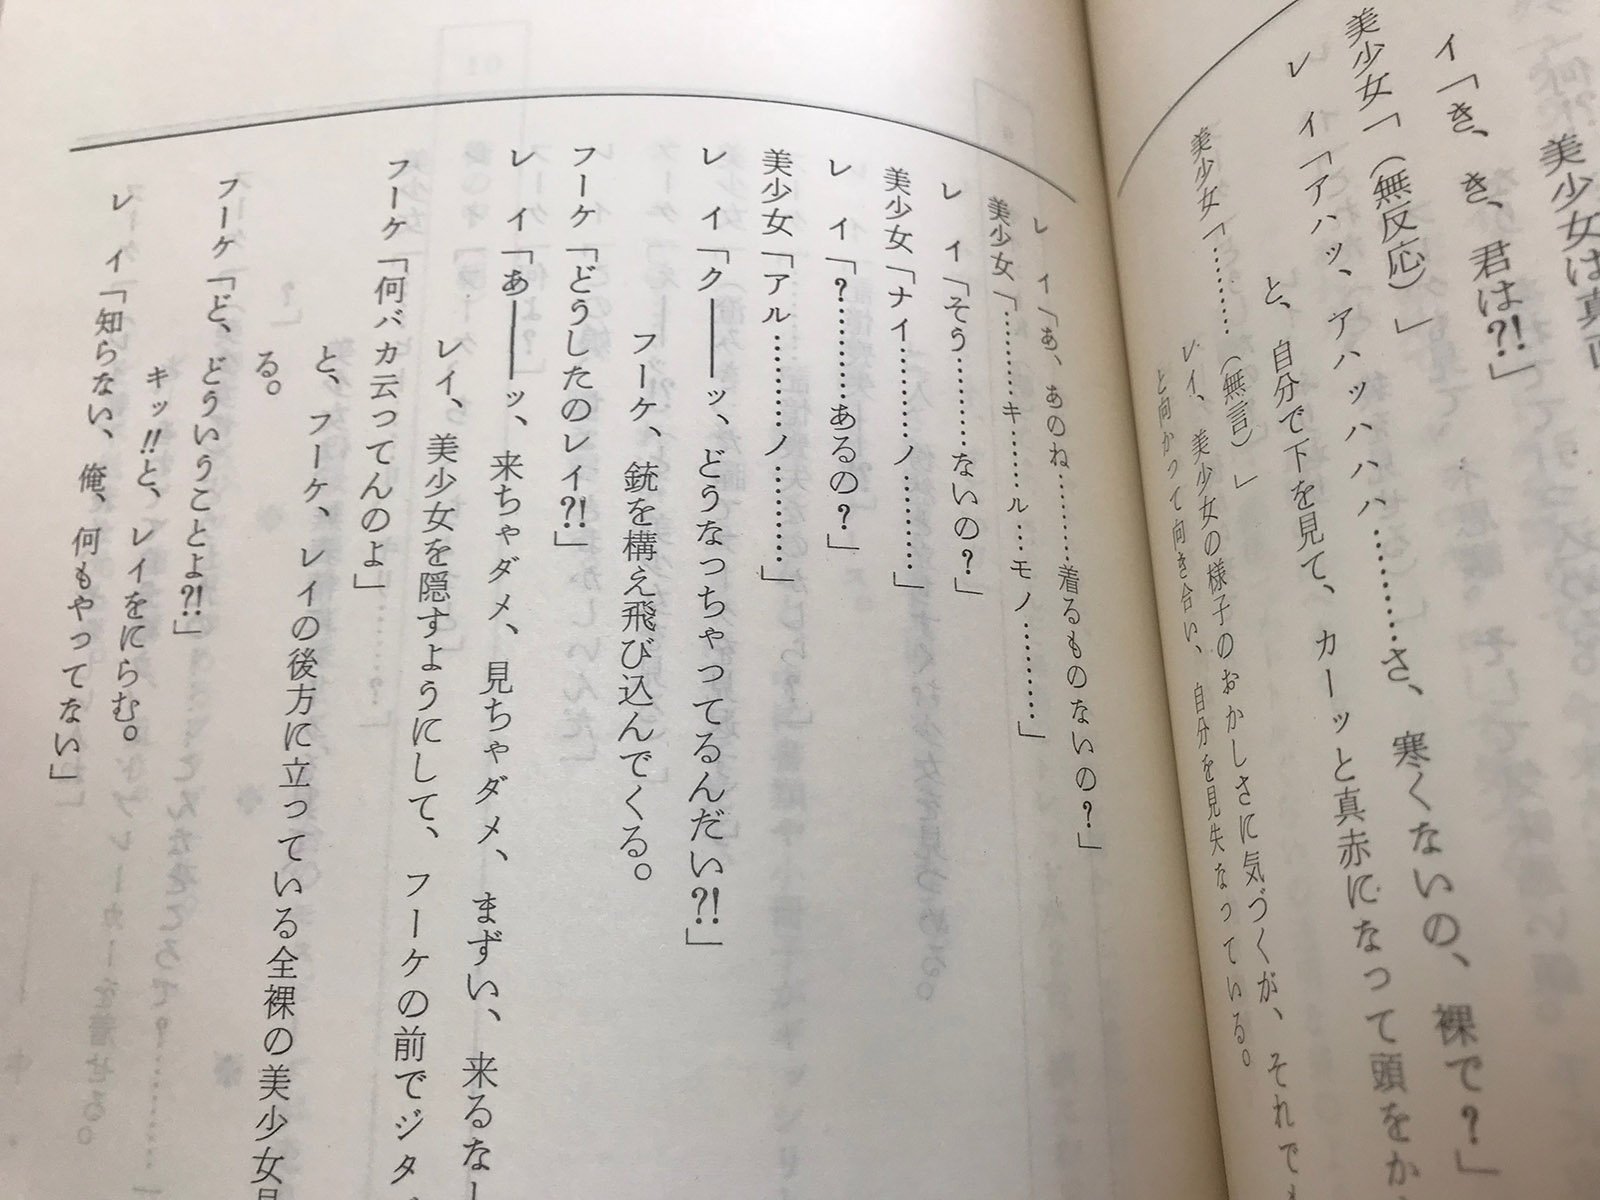 美少女は真
イ「き、き、君は?!」
美少女「（無反応）」
レ　イ「アハッ、アハッハハハ………さ、寒くないの、裸で？」
と、自分で下を見て、カーッと真赤になって頭をか
美少女「………（無言）」
レイ、美少女の様子のおかしさに気づくが、それでも
と向かって向き合い、自分を見失なっている。
レ　イ「あ、あのね………着るものないの？」
美少女「………キ……ル…モノ………」
レ　イ「そう………ないの？」
美少女「ナイ………ノ………」
レ　イ「？………あるの？」
美少女「アル………ノ………」
レ　イ「ク――ッ、どうなっちゃってるんだい?!」
フーケ、銃を構え飛び込んでくる。
フーケ「どうしたのレイ?!」
レ　イ「あ――ッ、来ちゃダメ、見ちゃダメ、まずい、来るな
レイ、美少女を隠すようにして、フーケの前でジタ
フーケ「何バカ云ってんのよ」
と、フーケ、レイの後方に立っている全裸の美少女
る。
フーケ「ど、どういうことよ?!」
キッ!!と、レイをにらむ。
レ　イ「知らない、俺、何もやってない」